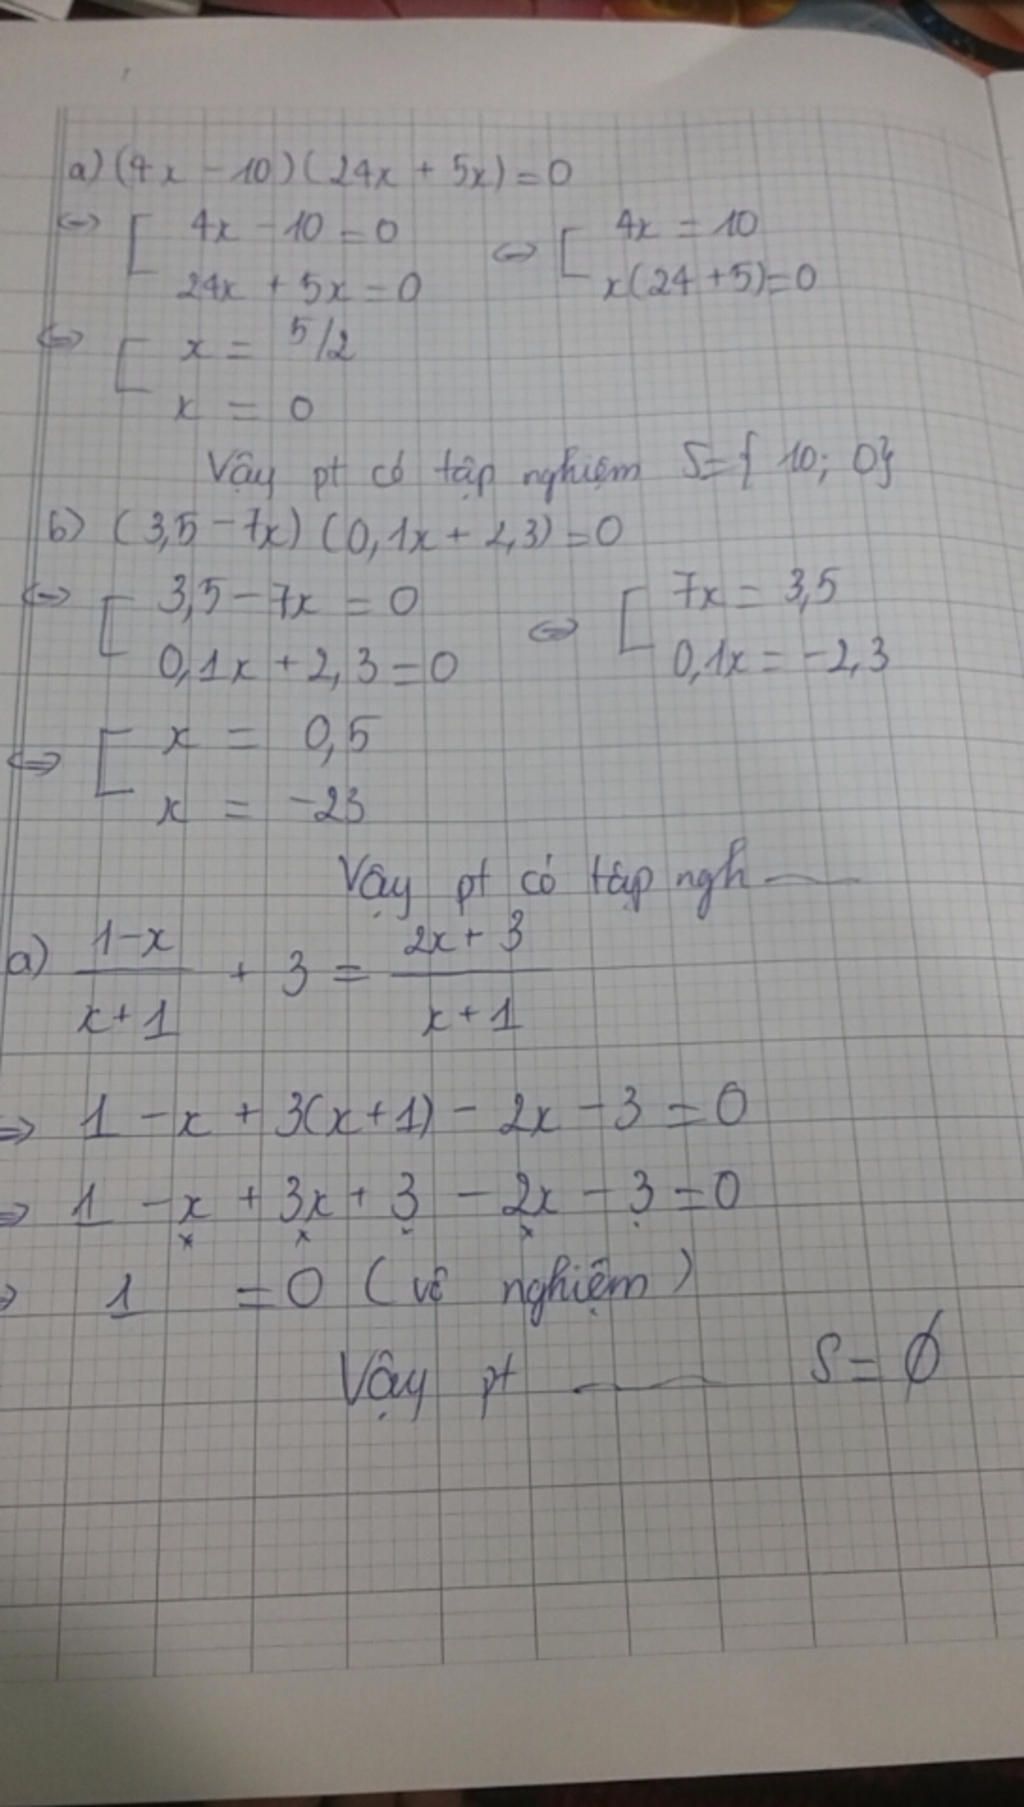 a) (4x - 10) (24x + 5x) = 0
⇔ [ 4x - 10 = 0 ⇔ [ 4x = 10
24x + 5x = 0 x(24 + 5) = 0
⇔ [ x = 5/2
x = 0
Vậy pt có tập nghiệm S = { 10; 0}
b) (3,5 - 7x) (0,1x + 2,3) = 0
⇔ [ 3,5 - 7x = 0 ⇔ [ 7x = 3,5
0,1x + 2,3 = 0 0,1x = -2,3
⇔ [ x = 0,5
x = -23
Vậy pt có tập ngh
a) (1-x)/(x+1) + 3 = (2x+3)/(x+1)
⇒ 1 - x + 3(x+1) - 2x - 3 = 0
⇒ 1 - x + 3x + 3 - 2x - 3 = 0
⇒ 1 = 0 (vô nghiệm)
Vậy pt S = ∅